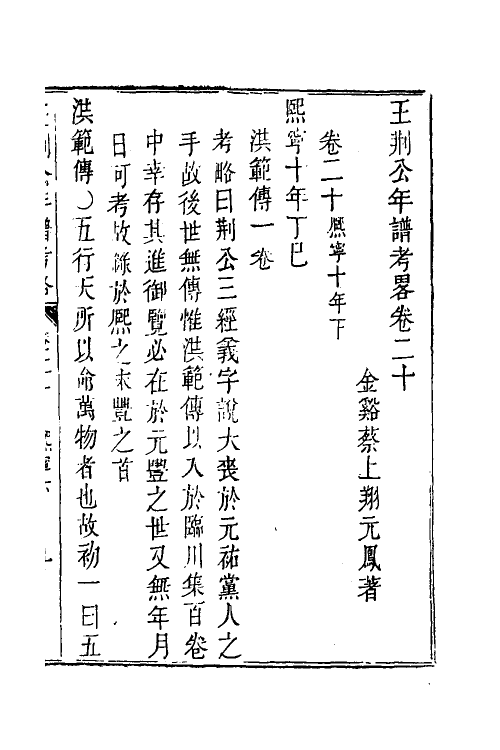 王荆公年譜考畧卷二十
金谿蔡上翔元鳳著
卷二十熙寧十年下
熙寧十年丁巳
洪範傳一卷
考略曰荆公三經義字說大喪於元祐黨人之
手故後世無傳惟洪範傳以入於臨川集百卷
中幸存其進御覽必在於元豐之世又無年月
日可考故綠於熙之末豐之首
洪範傳〇五行天所以命萬物者也故初一曰五
王荆公年譜考略